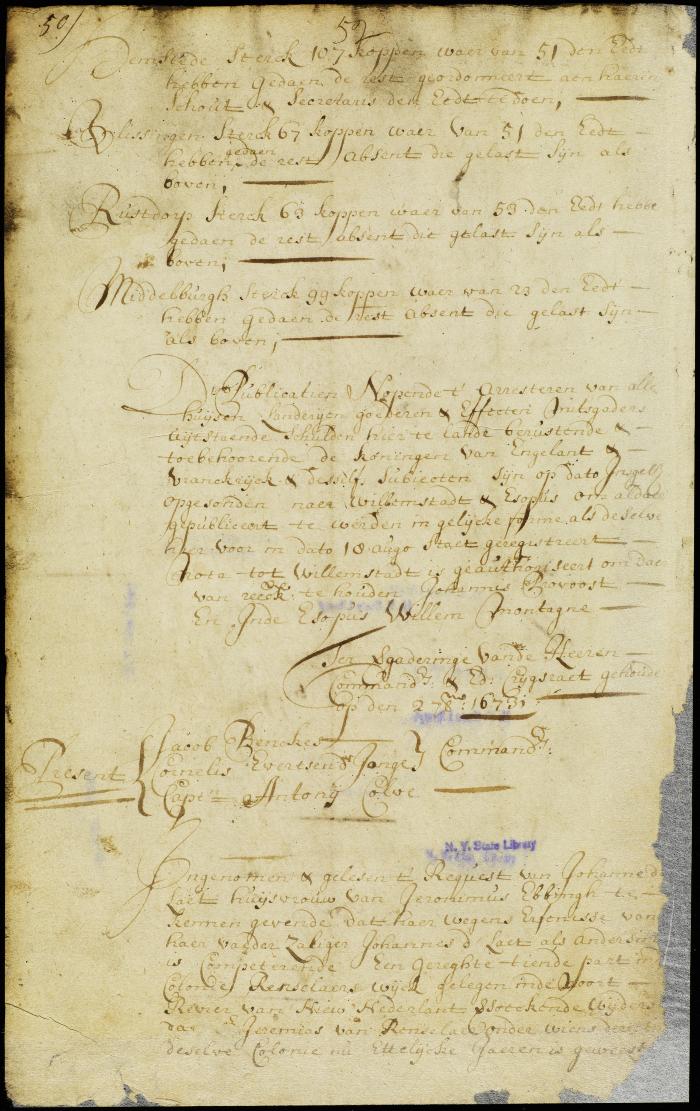 50/ 50
Heemstede Sterck 107 koppen waer van 51 den Eedt
hebben gedaen de rest geordonneert aen haeren
Schout & Secretaris den Eedt te doen,
Vlissingen Sterck 67 koppen waer van 51 den Eedt
gedaen
hebben, de rest absent die gelast sijn als
boven,
Rustdorp Sterck 63 koppen waer van 53 den Eedt hebbe
gedaen de rest absent die gelast sijn als
boven;
Middelburgh Sterck 99 koppen waer van 23 den Eedt
hebben gedaen de rest absent die gelast sijn
als boven,
De Publicatien Nopende t' arresteren van alle
huijsen Landerijen goederen & Effecten mitsgaders
uijtstaende Schulden hier te lande berustende &
toebehoorende de koningen van Engelant &
vranckrijck & desselfs Subjecten sijn op dato
opgesonden naer Willemstadt & Esopus om aldaer
gepubliceert te werden in gelijcke forme als deselve
hier voor in dato 18 augo staet geregistreert
Nota tot Willemstadt is geauthoriseert om daer
van reeck. te houden Johannis Provoost
En Inde Esopus Willem Montagne
Ter Vgaderinge vande Heeren
Command.rs & Ed: Crijgsraet gehoude
op den 2 7b: 1673;
Jacob Benckes
Present Cornelis Evertsen d' Jonge Command.rs
Capt.n Antonij Colve
N. Y. State Library
Ingenomen & gelesen t Request van Johanna de
Laet huijsvrouw van Jeronimus Ebbingh te
kennen gevende dat haer wegens Erfenisse van
haer vaeder Zaliger Johannes d Laet als andersints
is Competerende Een gereghte tiende part in
Colonie Renselaers wijck gelegen inde Noort
Revier van Nieu Nederlant Vsoeckende wijders
dat Sr Jeremias van Renselaer onder wiens
deselve Colonie nu Ettelijcke Jaeren is geweest